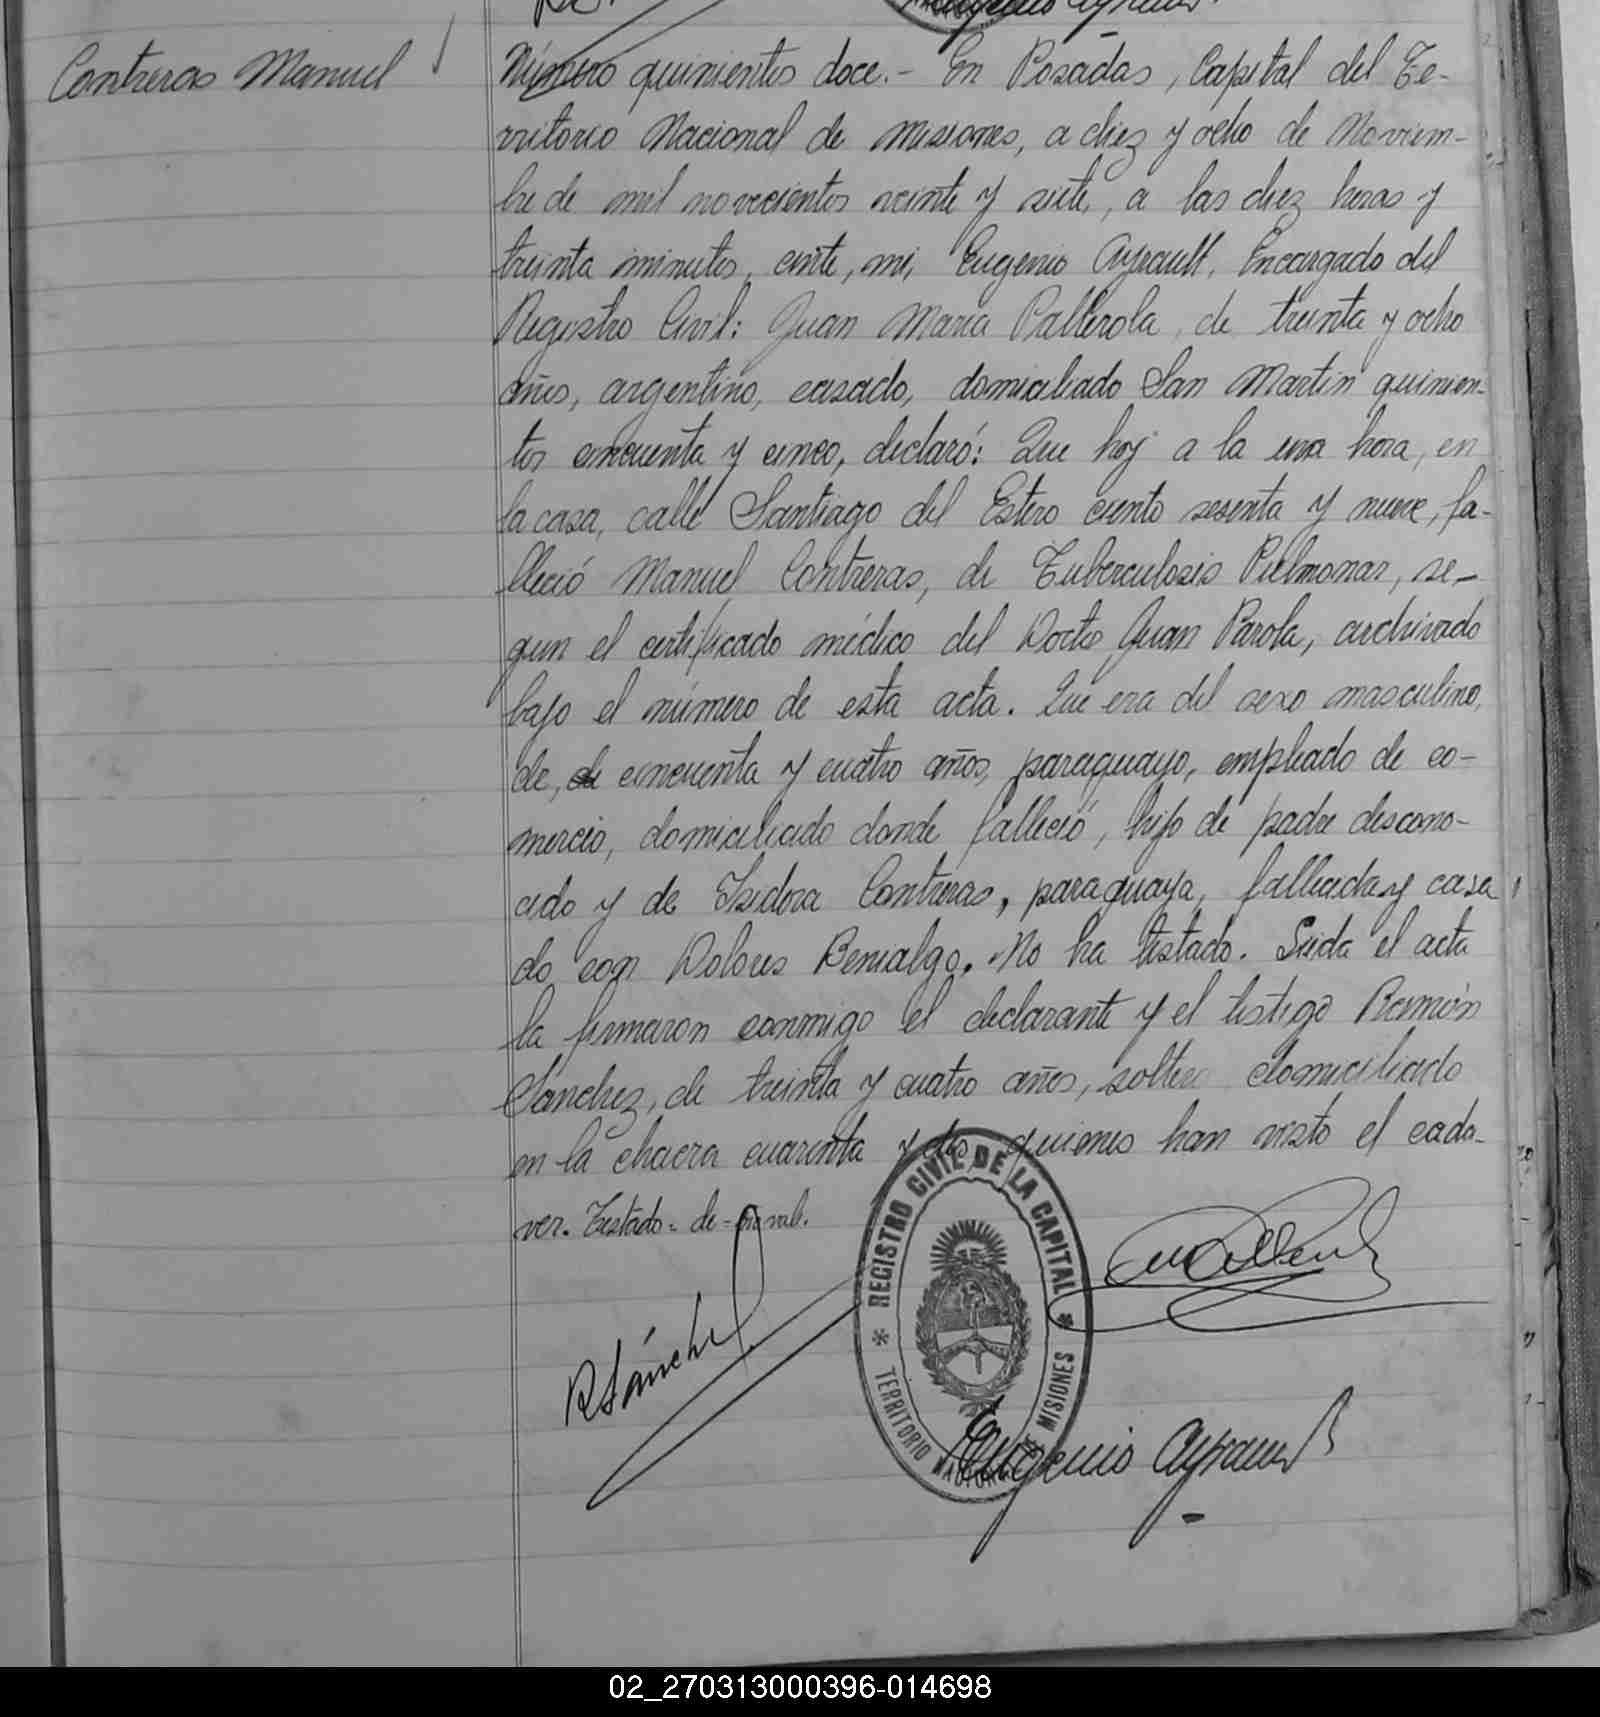 Contreras Manuel
Número quinientos doce.- En Posadas, Capital del Te-
rritorio Nacional de Misiones, a diez y ocho de Noviem-
bre de mil novecientos veinte y siete, a las diez horas y
treinta minutos, ante, mi, Eugenio Ayrault, Encargado del
Registro Civil: Juan Maria Pallerola, de treinta y ocho
años, argentino, casado, domiciliado San Martin quinien-
tos cincuenta y cinco, declaró: Que hoy a la una hora, en
la casa, calle Santiago del Estero ciento sesenta y nueve, fa-
lleció Manuel Contreras, de Tuberculosis Pulmonar, se-
gun el certificado médico del Doctor Juan Parola, archivado
bajo el número de esta acta. Que era del sexo masculino,
de, de cincuenta y cuatro años, paraguayo, empleado de co-
mercio, domiciliado donde falleció, hijo de padre descono-
cido y de Isidora Contreras, paraguaya, fallecida y casa
do con Dolores Benialgo. No ha testado. Leida el acta
la firmaron conmigo el declarante y el testigo Ramón
Sánchez, de treinta y cuatro años, soltero domiciliado
en la chacra cuarenta y dos quienes han visto el cada-
ver. Testado = de = no vale.
REGISTRO CIVIL DE LA CAPITAL
TERRITORIO NACIONAL DE MISIONES
R Sánchez
Eugenio Ayrault
02_270313000396-014698